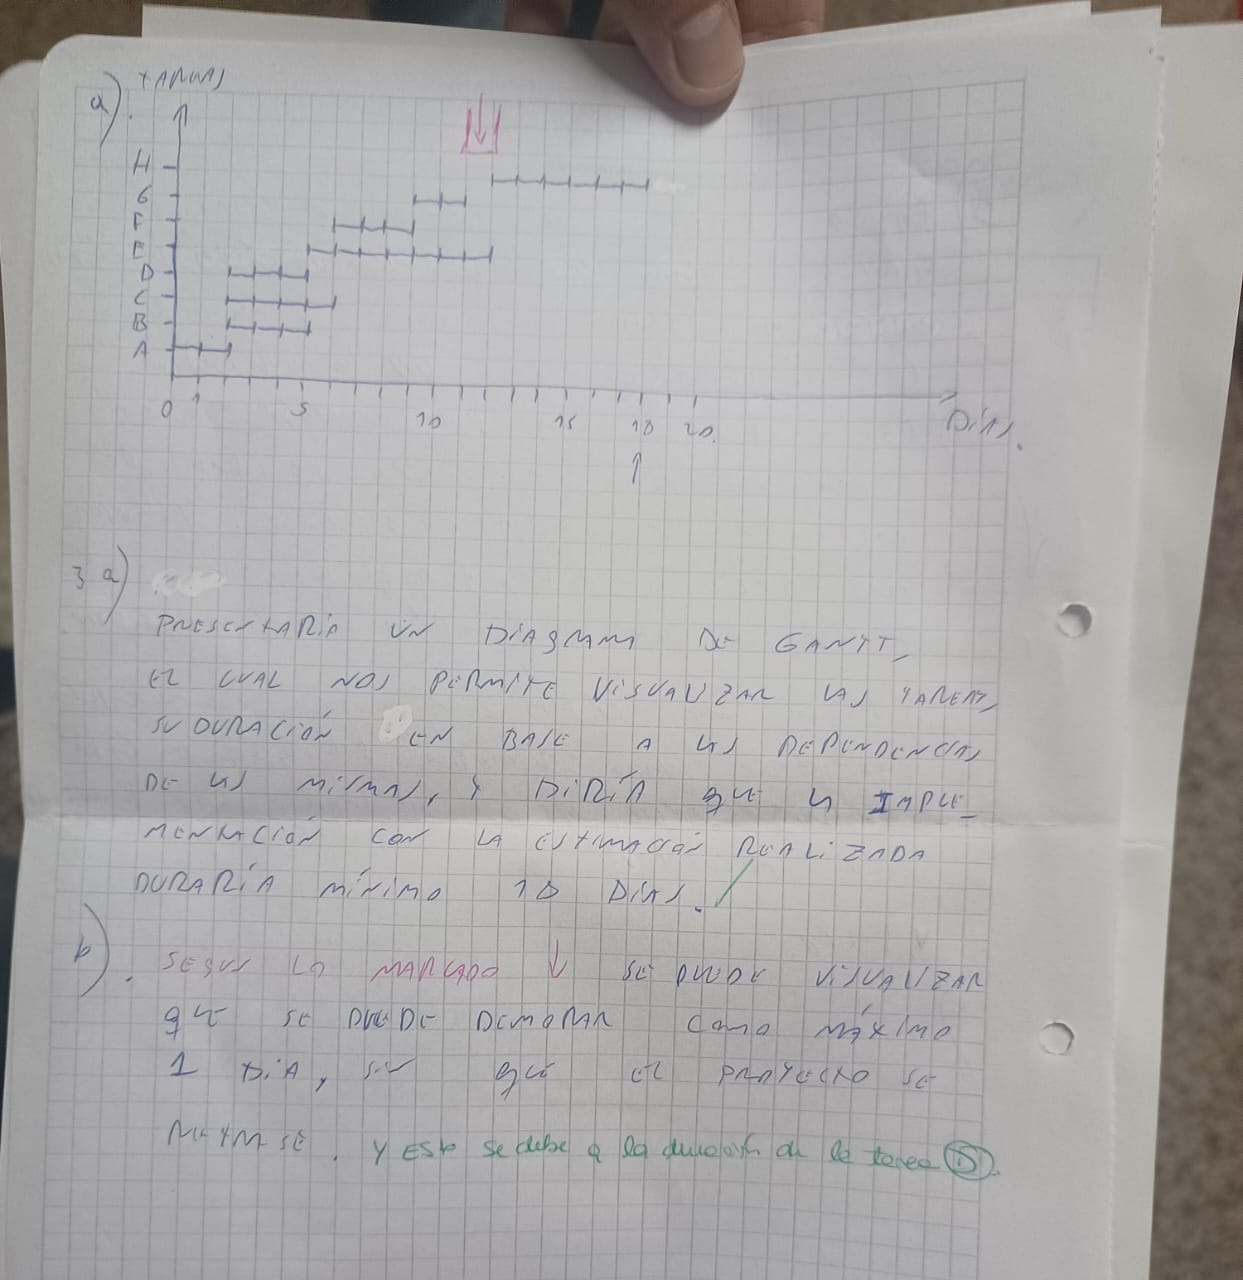 a). TAREAS
H
G
F
E
D
C
B
A
0 1 5 10 15 18 20
DÍAS.
3 a)
PRESENTARÍA UN DIAGRAMA DE GANTT,
EL CUAL NOS PERMITE VISUALIZAR LAS TAREAS,
SU DURACIÓN EN BASE A LAS DEPENDENCIAS
DE LAS MISMAS, Y DIRÍA QUE LA IMPLE_
MENTACIÓN CON LA ESTIMACIÓN REALIZADA
DURARÍA MÍNIMO 18 DÍAS.
b). SEGUN LO MARCADO ↓ SE PUEDE VISUALIZAR
QUE SE PUEDE DEMORAR COMO MÁXIMO
1 DÍA, SIN QUE EL PROYECTO SE
ATRASE. Y ESto se debe a la duración de la tarea D.